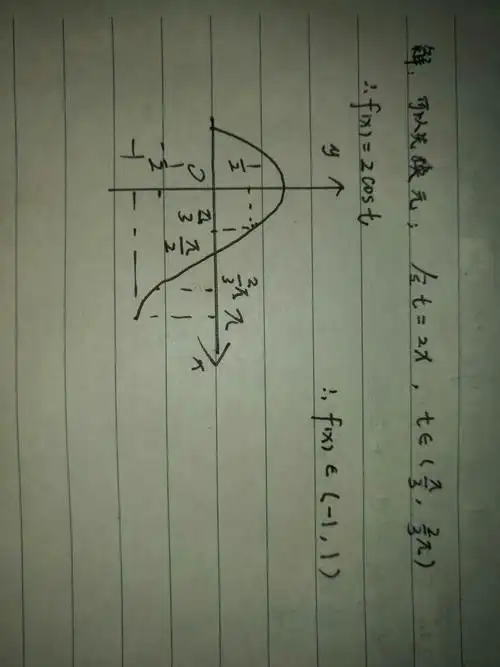 解: 可以先换元; 令t=2x, t∈(π/3, 2/3π)
∴f(x)=2cost
y
1/2
O
-1/2
-1
π/3
π/2
2/3π
π
x
∴f(x)∈(-1,1)